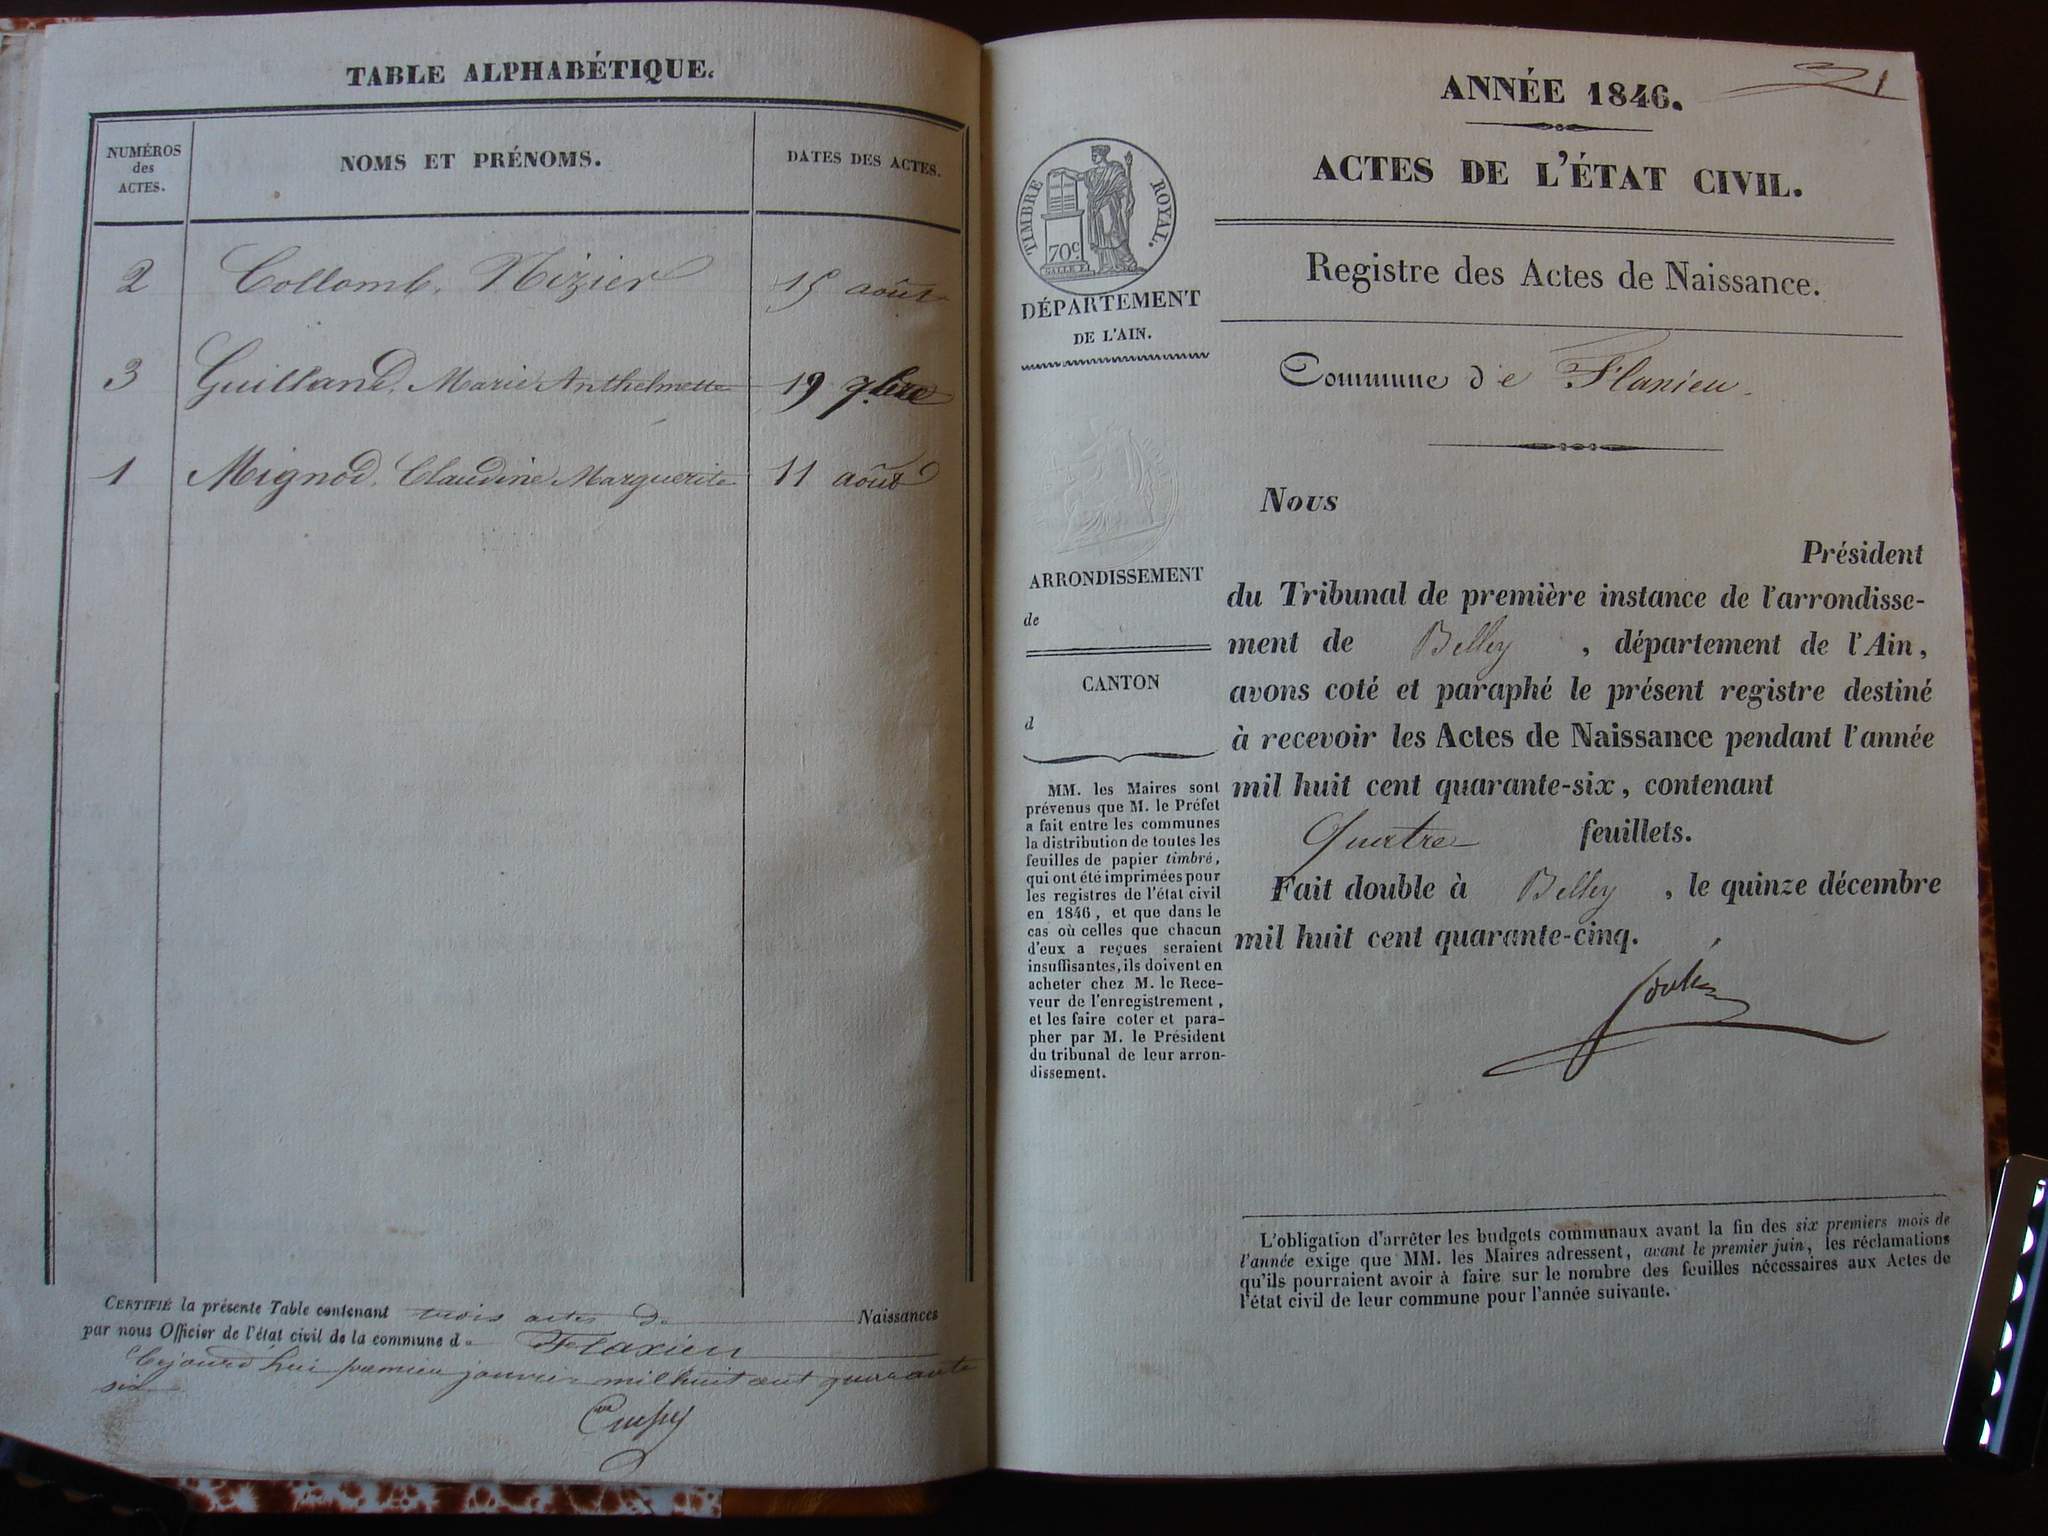 TABLE ALPHABÉTIQUE.
NUMÉROS
des
ACTES.
NOMS ET PRÉNOMS.
DATES DES ACTES.
2 Collomb, Nizier 15 août
3 Guilland, Marie Anthelmette 19 9bre
1 Mignod, Claudine Marguerite 11 août
CERTIFIÉ la présente Table contenant trois actes de Naissances
par nous Officier de l'état civil de la commune d Flaxieu
Cejourd'hui premier janvier mil huit cent quarante
six
ANNÉE 1846.
21
ACTES DE L'ÉTAT CIVIL.
Registre des Actes de Naissance.
TIMBRE ROYAL.
70c
DÉPARTEMENT
DE L'AIN.
Commune de Flaxieu.
ARRONDISSEMENT
de
CANTON
d
MM. les Maires sont
prévenus que M. le Préfet
a fait entre les communes
la distribution de toutes les
feuilles de papier timbré,
qui ont été imprimées pour
les registres de l'état civil
en 1846, et que dans le
cas où celles que chacun
d'eux a reçues seraient
insuffisantes, ils doivent en
acheter chez M. le Rece-
veur de l'enregistrement,
et les faire coter et para-
pher par M. le Président
du tribunal de leur arron-
dissement.
Nous
Président
du Tribunal de première instance de l'arrondisse-
ment de Belley, département de l'Ain,
avons coté et paraphé le présent registre destiné
à recevoir les Actes de Naissance pendant l'année
mil huit cent quarante-six, contenant
Quatre feuillets.
Fait double à Belley, le quinze décembre
mil huit cent quarante-cinq.
L'obligation d'arrêter les budgets communaux avant la fin des six premiers mois de
l'année exige que MM. les Maires adressent, avant le premier juin, les réclamations
qu'ils pourraient avoir à faire sur le nombre des feuilles nécessaires aux Actes de
l'état civil de leur commune pour l'année suivante.